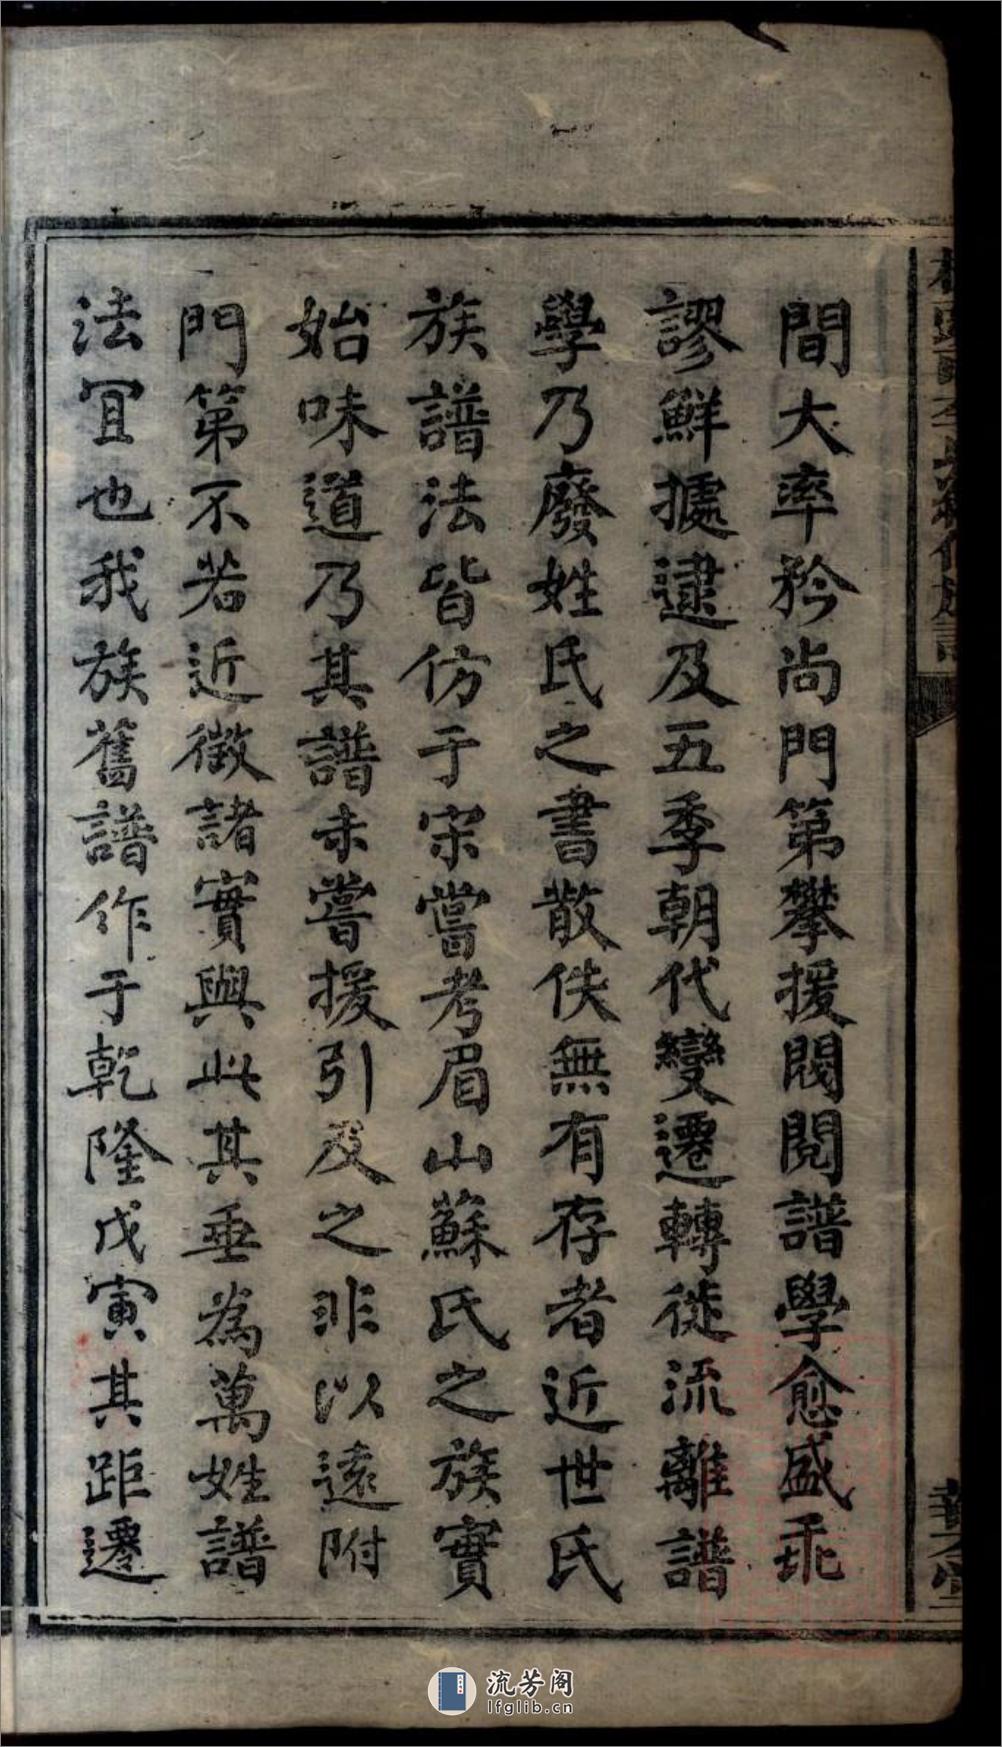 間大率矜尚門第攀援閥閱譜學愈盛乖
謬鮮據逮及五季朝代變遷轉徙流離譜
學乃廢姓氏之書散佚無有存者近世氏
族譜法皆仿于宋嘗考眉山蘇氏之族實
始味道乃其譜未嘗援引及之非以遠附
門第不若近徵諸實與此其垂為萬姓譜
法宜也我族舊譜作于乾隆戊寅其距遷
流芳阁
lfglib.cn